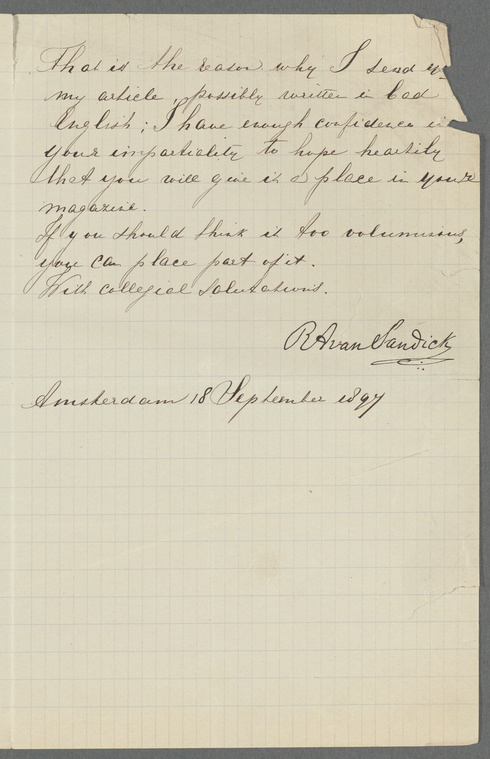 That is the reason why I send yo
my article, possibly written in bad
English; I have enough confidence in
your impartiality to hope heartily
that you will give it a place in your
magazine.
If you should think it too volumnious,
you can place part of it.
With collegial salutations.
RA van Sandick
Amsterdam 18 September 1897